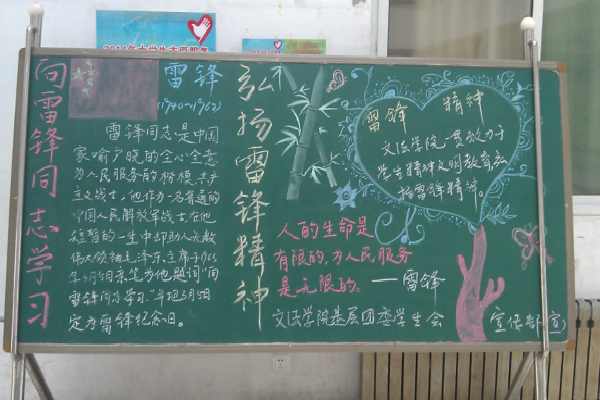 2014年大学生志愿服务
向雷锋同志学习
雷锋
(1940~1962)
雷锋同志是中国
家喻户晓的全心全意
为人民服务的楷模,共产
主义战士,他作为一名普通的
中国人民解放军战士,在他
短暂的一生中却助人无数
伟大领袖毛泽东主席于1963
年3月5日亲笔为他题词“向
雷锋同志学习”并把3月5日
定为雷锋纪念日。
弘扬雷锋精神
雷锋 精神
文法学院一贯致力于
学生精神文明教育,弘
扬雷锋精神。
人的生命是
有限的,为人民服务
是无限的。
——雷锋
文法学院基层团委学生会
宣传部(宣)